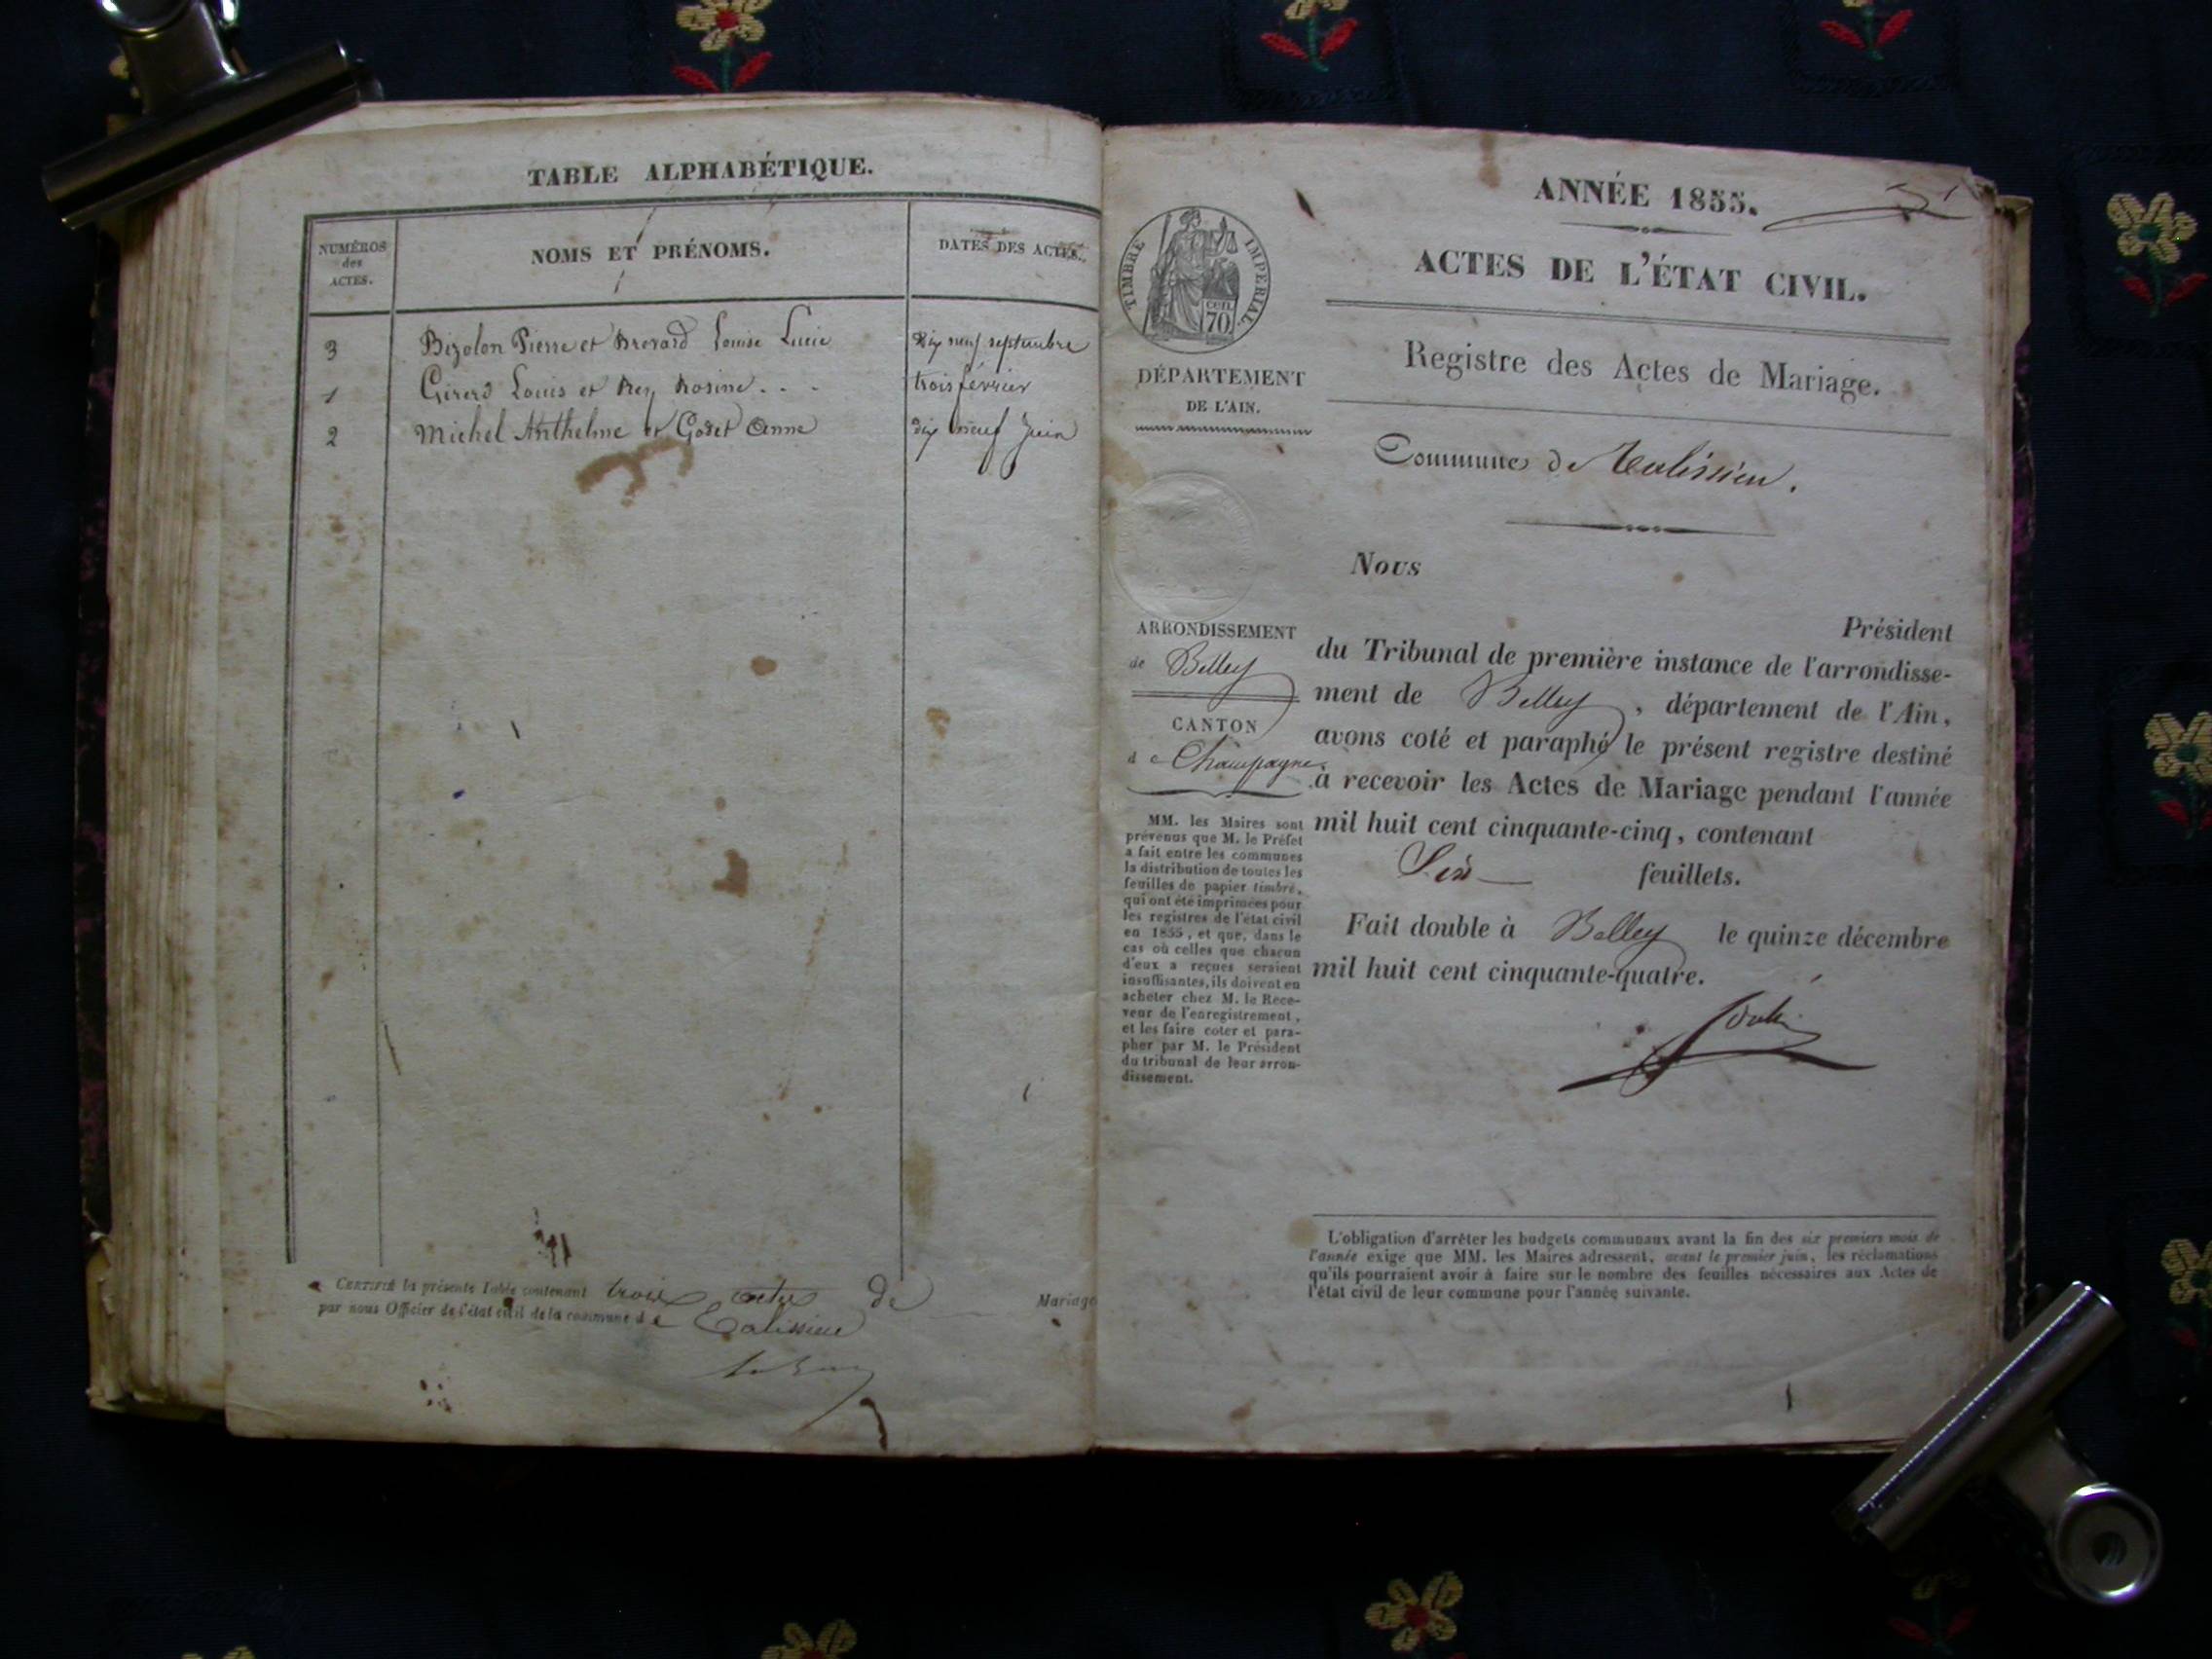 TABLE ALPHABÉTIQUE.
NUMÉROS
des
ACTES.
NOMS ET PRÉNOMS.
DATES DES ACTES.
3 Bizolon Pierre et Brevard Louise Lucie dix neuf septembre
1 Girerd Louis et Rey Rosine . . . trois février
2 Michel Anthelme et Godet Anne dix neuf Juin
CERTIFIÉ la présente Table contenant trois actes de Mariage
par nous Officier de l'état civil de la commune de Talissieu
ANNÉE 1855.
TIMBRE IMPÉRIAL.
CEN.
70
ACTES DE L'ÉTAT CIVIL.
Registre des Actes de Mariage.
DÉPARTEMENT
DE L'AIN.
Commune de Talissieu.
ARRONDISSEMENT
de Belley
CANTON
de Champagne
MM. les Maires sont
prévenus que M. le Préfet
a fait entre les communes
la distribution de toutes les
feuilles de papier timbré,
qui ont été imprimées pour
les registres de l'état civil
en 1855, et que, dans le
cas où celles que chacun
d'eux a reçues seraient
insuffisantes, ils doivent en
acheter chez M. le Rece-
veur de l'enregistrement,
et les faire coter et para-
pher par M. le Président
du tribunal de leur arron-
dissement.
Nous
Président
du Tribunal de première instance de l'arrondisse-
ment de Belley, département de l'Ain,
avons coté et paraphé le présent registre destiné
à recevoir les Actes de Mariage pendant l'année
mil huit cent cinquante-cinq, contenant
Six feuillets.
Fait double à Belley le quinze décembre
mil huit cent cinquante-quatre.
L'obligation d'arrêter les budgets communaux avant la fin des six premiers mois de
l'année exige que MM. les Maires adressent, avant le premier juin, les réclamations
qu'ils pourraient avoir à faire sur le nombre des feuilles nécessaires aux Actes de
l'état civil de leur commune pour l'année suivante.